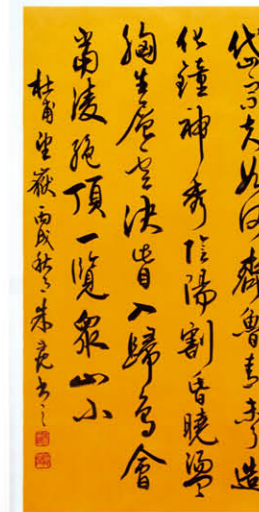 岱宗夫如何齊魯青未了造
化鐘神秀陰陽割昏曉盪
胸生層雲決眥入歸鳥會
當凌絕頂一覽眾山小
杜甫望嶽丙戌秋朱書之